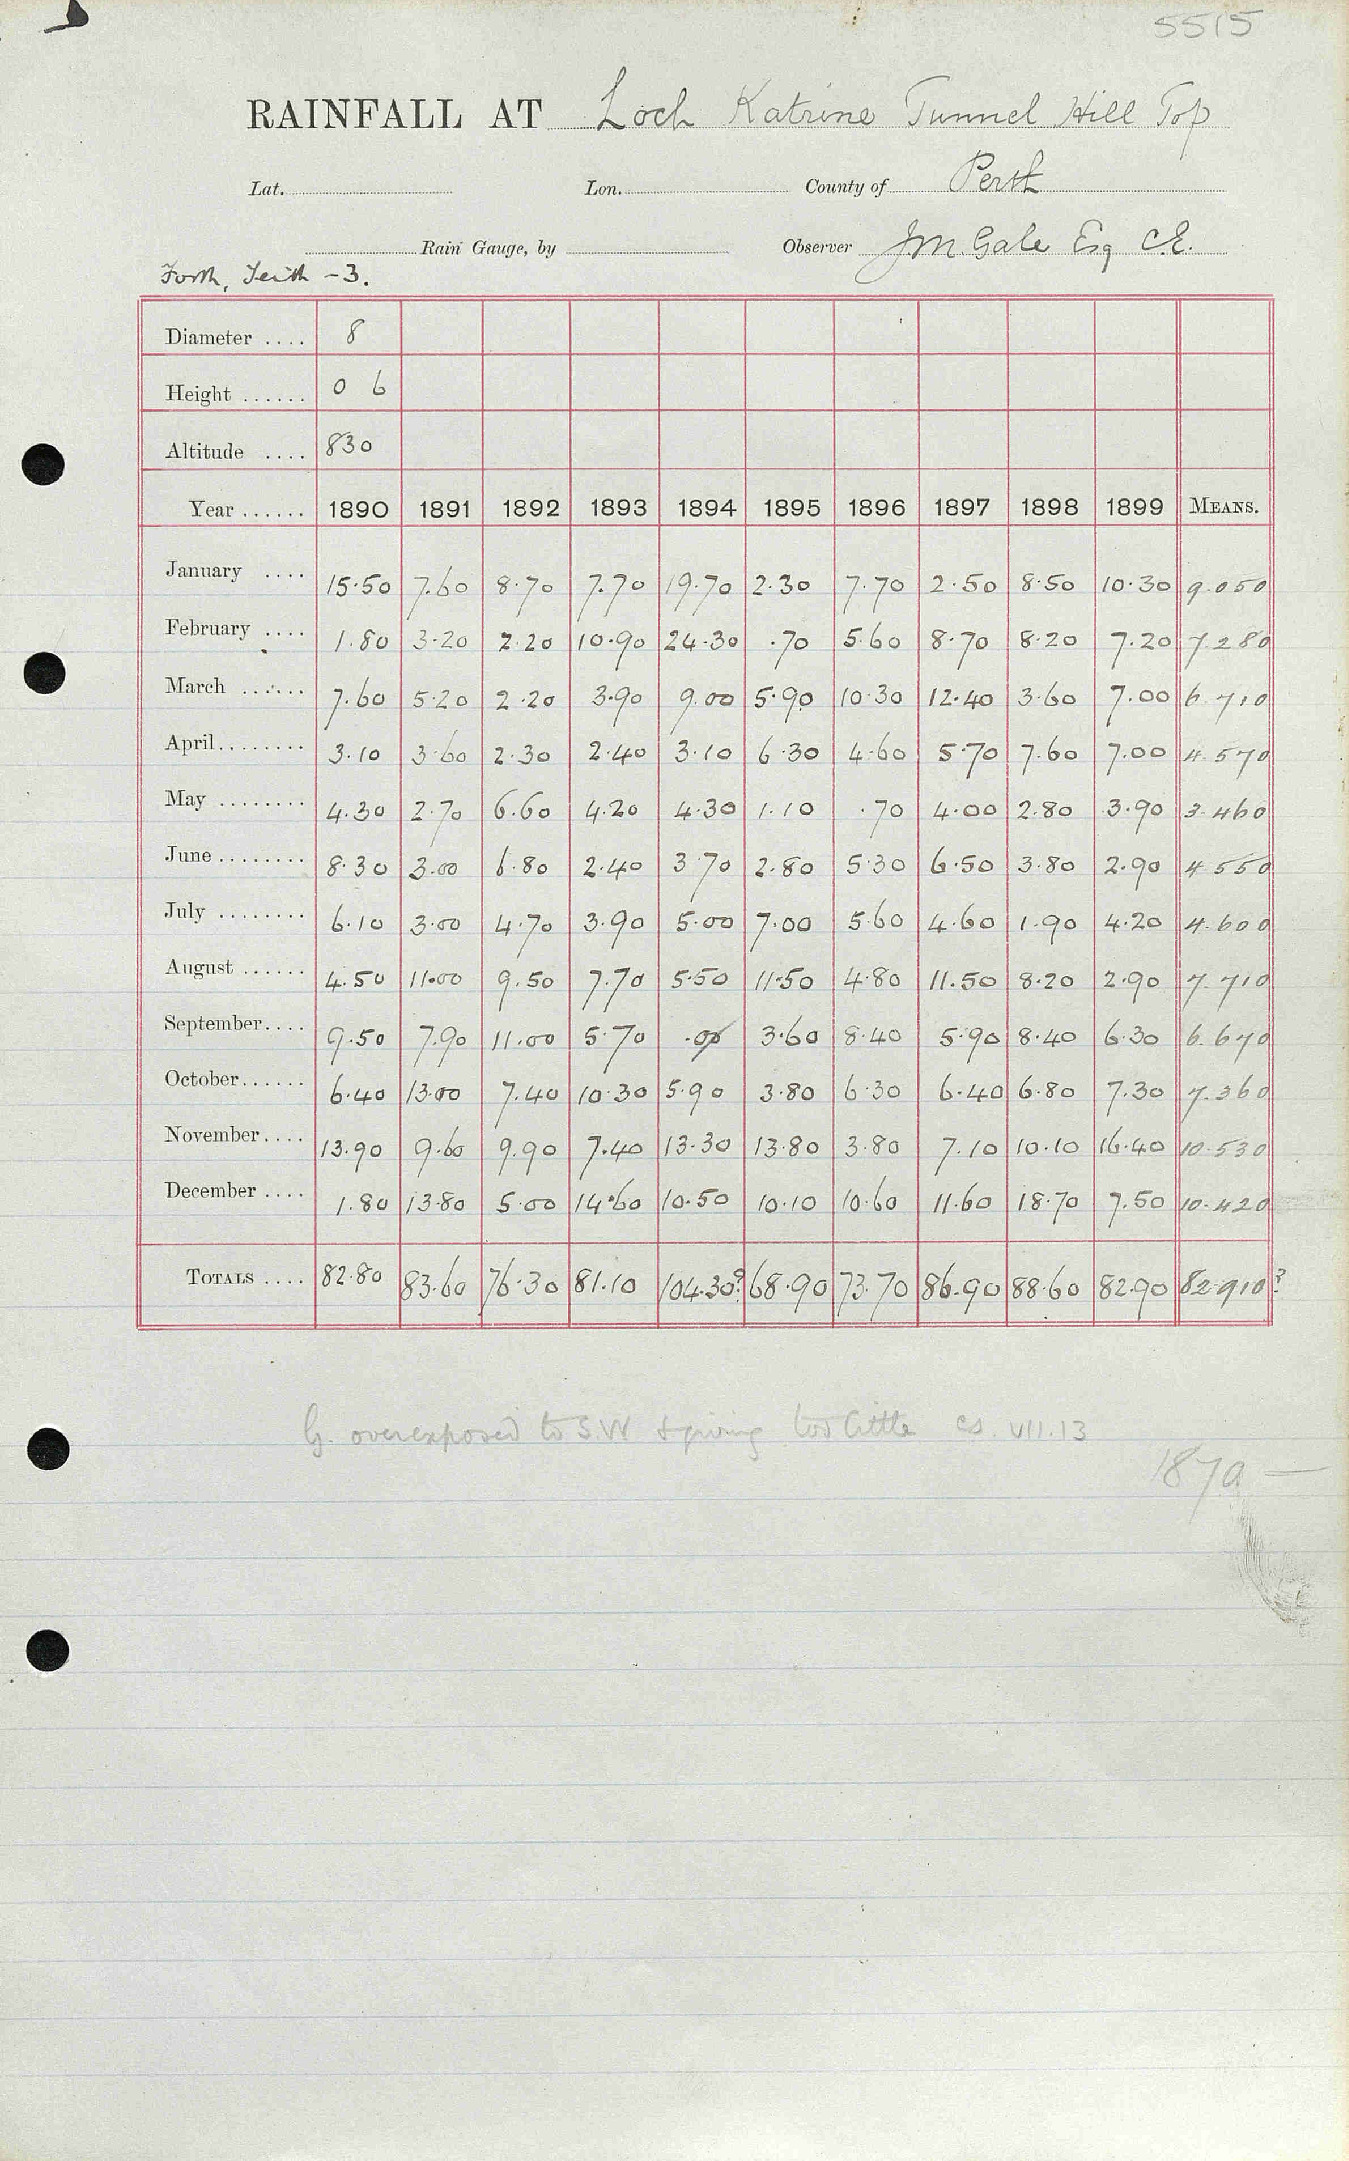 5515
RAINFALL AT Loch Katrine Tunnel Hill Top
Lat. Lon. County of Perth
Rain Gauge, by Observer J M. Gale Esq C.E.
Forth, Teith - 3.
Diameter .... 8
Height ...... 0 6
Altitude .... 830
Year ...... 1890 1891 1892 1893 1894 1895 1896 1897 1898 1899 MEANS.
January .... 15.50 7.60 8.70 7.70 19.70 2.30 7.70 2.50 8.50 10.30 9.050
February .... 1.80 3.20 2.20 10.90 24.30 .70 5.60 8.70 8.20 7.20 7.280
March ...... 7.60 5.20 2.20 3.90 9.00 5.90 10.30 12.40 3.60 7.00 6.710
April........ 3.10 3.60 2.30 2.40 3.10 6.30 4.60 5.70 7.60 7.00 4.570
May ........ 4.30 2.70 6.60 4.20 4.30 1.10 .70 4.00 2.80 3.90 3.460
June ........ 8.30 3.00 6.80 2.40 3.70 2.80 5.30 6.50 3.80 2.90 4.550
July ........ 6.10 3.00 4.70 3.90 5.00 7.00 5.60 4.60 1.90 4.20 4.600
August ...... 4.50 11.00 9.50 7.70 5.50 11.50 4.80 11.50 8.20 2.90 7.710
September.... 9.50 7.90 11.00 5.70 .00 3.60 8.40 5.90 8.40 6.30 6.670
October...... 6.40 13.00 7.40 10.30 5.90 3.80 6.30 6.40 6.80 7.30 7.360
November.... 13.90 9.60 9.90 7.40 13.30 13.80 3.80 7.10 10.10 16.40 10.530
December .... 1.80 13.80 5.00 14.60 10.50 10.10 10.60 11.60 18.70 7.50 10.420
TOTALS .... 82.80 83.60 76.30 81.10 104.30? 68.90 73.70 86.90 88.60 82.90 82.910?
G. overexposed to S.W & giving too little cs. VII.13
187a —